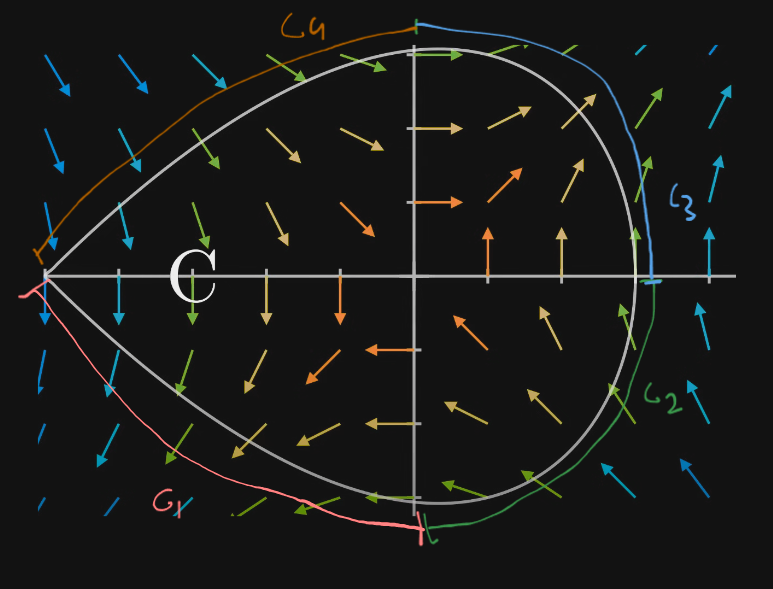 C4
C3
C
C2
C1